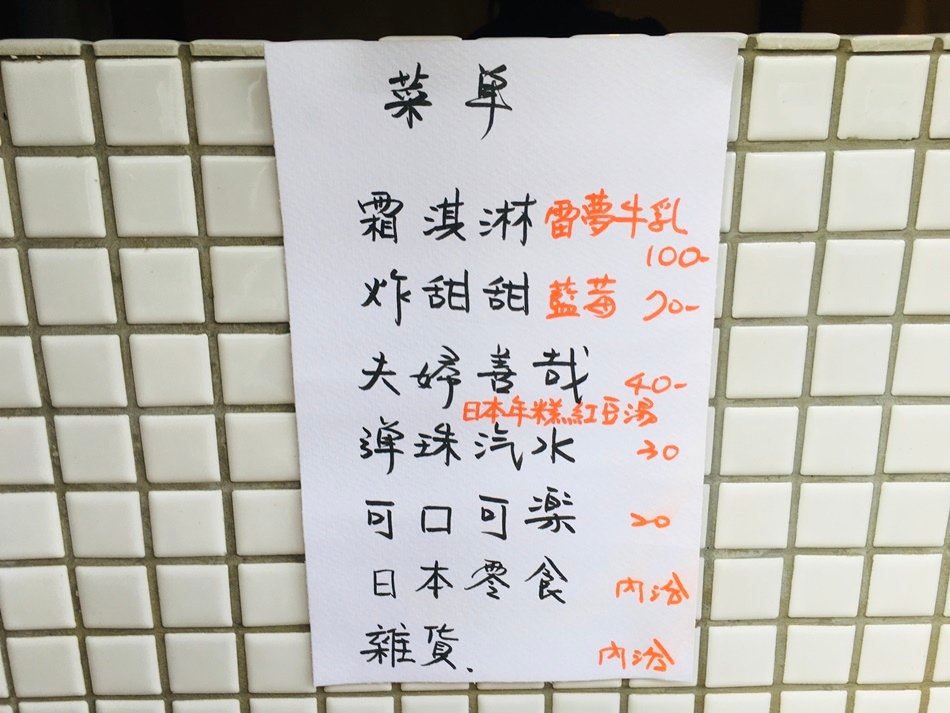 菜单
霜淇淋 雷夢牛乳 100-
炸甜甜 藍莓 70-
夫婦善哉 40-
日本年糕紅豆湯
弹珠汽水 30
可口可楽 20
日本零食 內洽
雜貨、 內洽